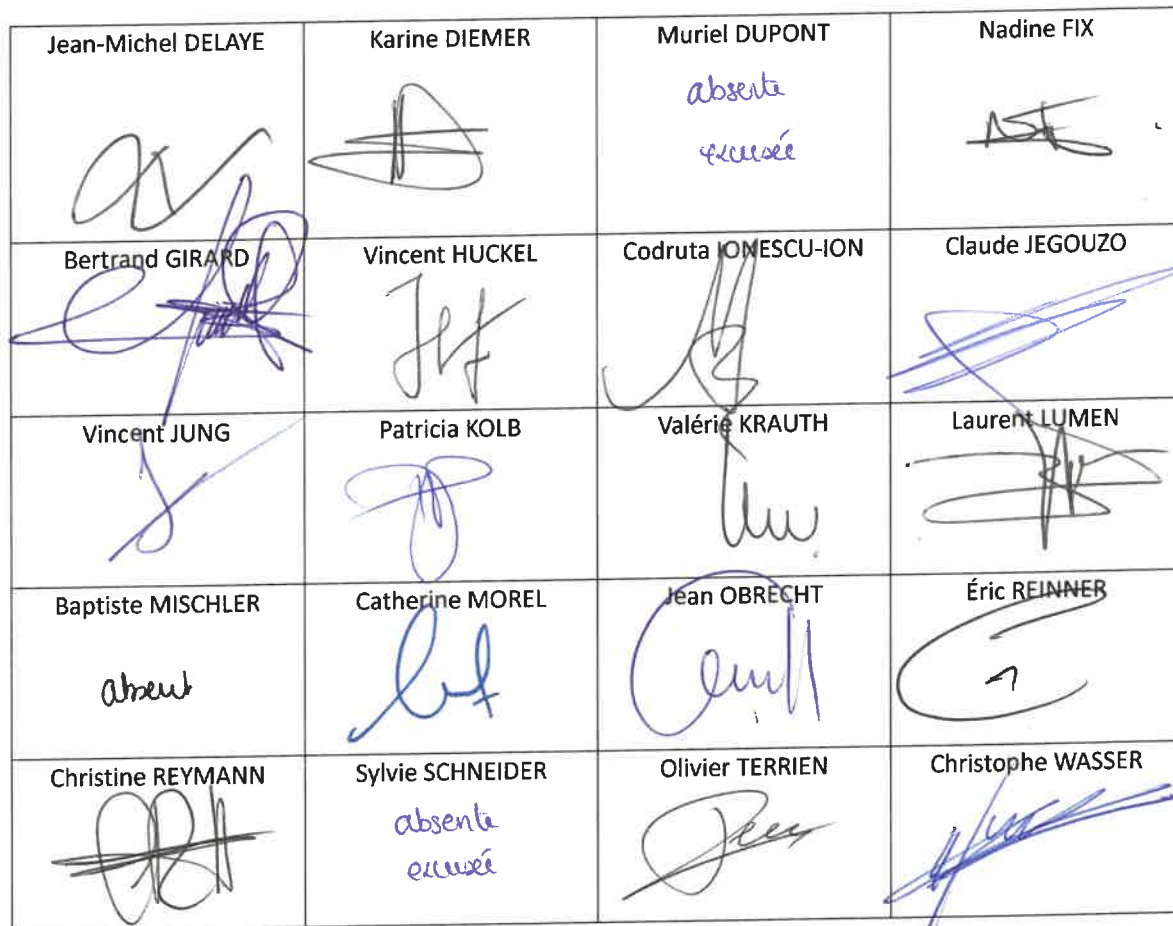 Jean-Michel DELAYE
Karine DIEMER
Muriel DUPONT
absente
excusée
Nadine FIX
Bertrand GIRARD
Vincent HUCKEL
Codruta IONESCU-ION
Claude JEGOUZO
Vincent JUNG
Patricia KOLB
Valérie KRAUTH
Laurent LUMEN
Baptiste MISCHLER
absent
Catherine MOREL
Jean OBRECHT
Éric REINNER
Christine REYMANN
Sylvie SCHNEIDER
absente
excusée
Olivier TERRIEN
Christophe WASSER